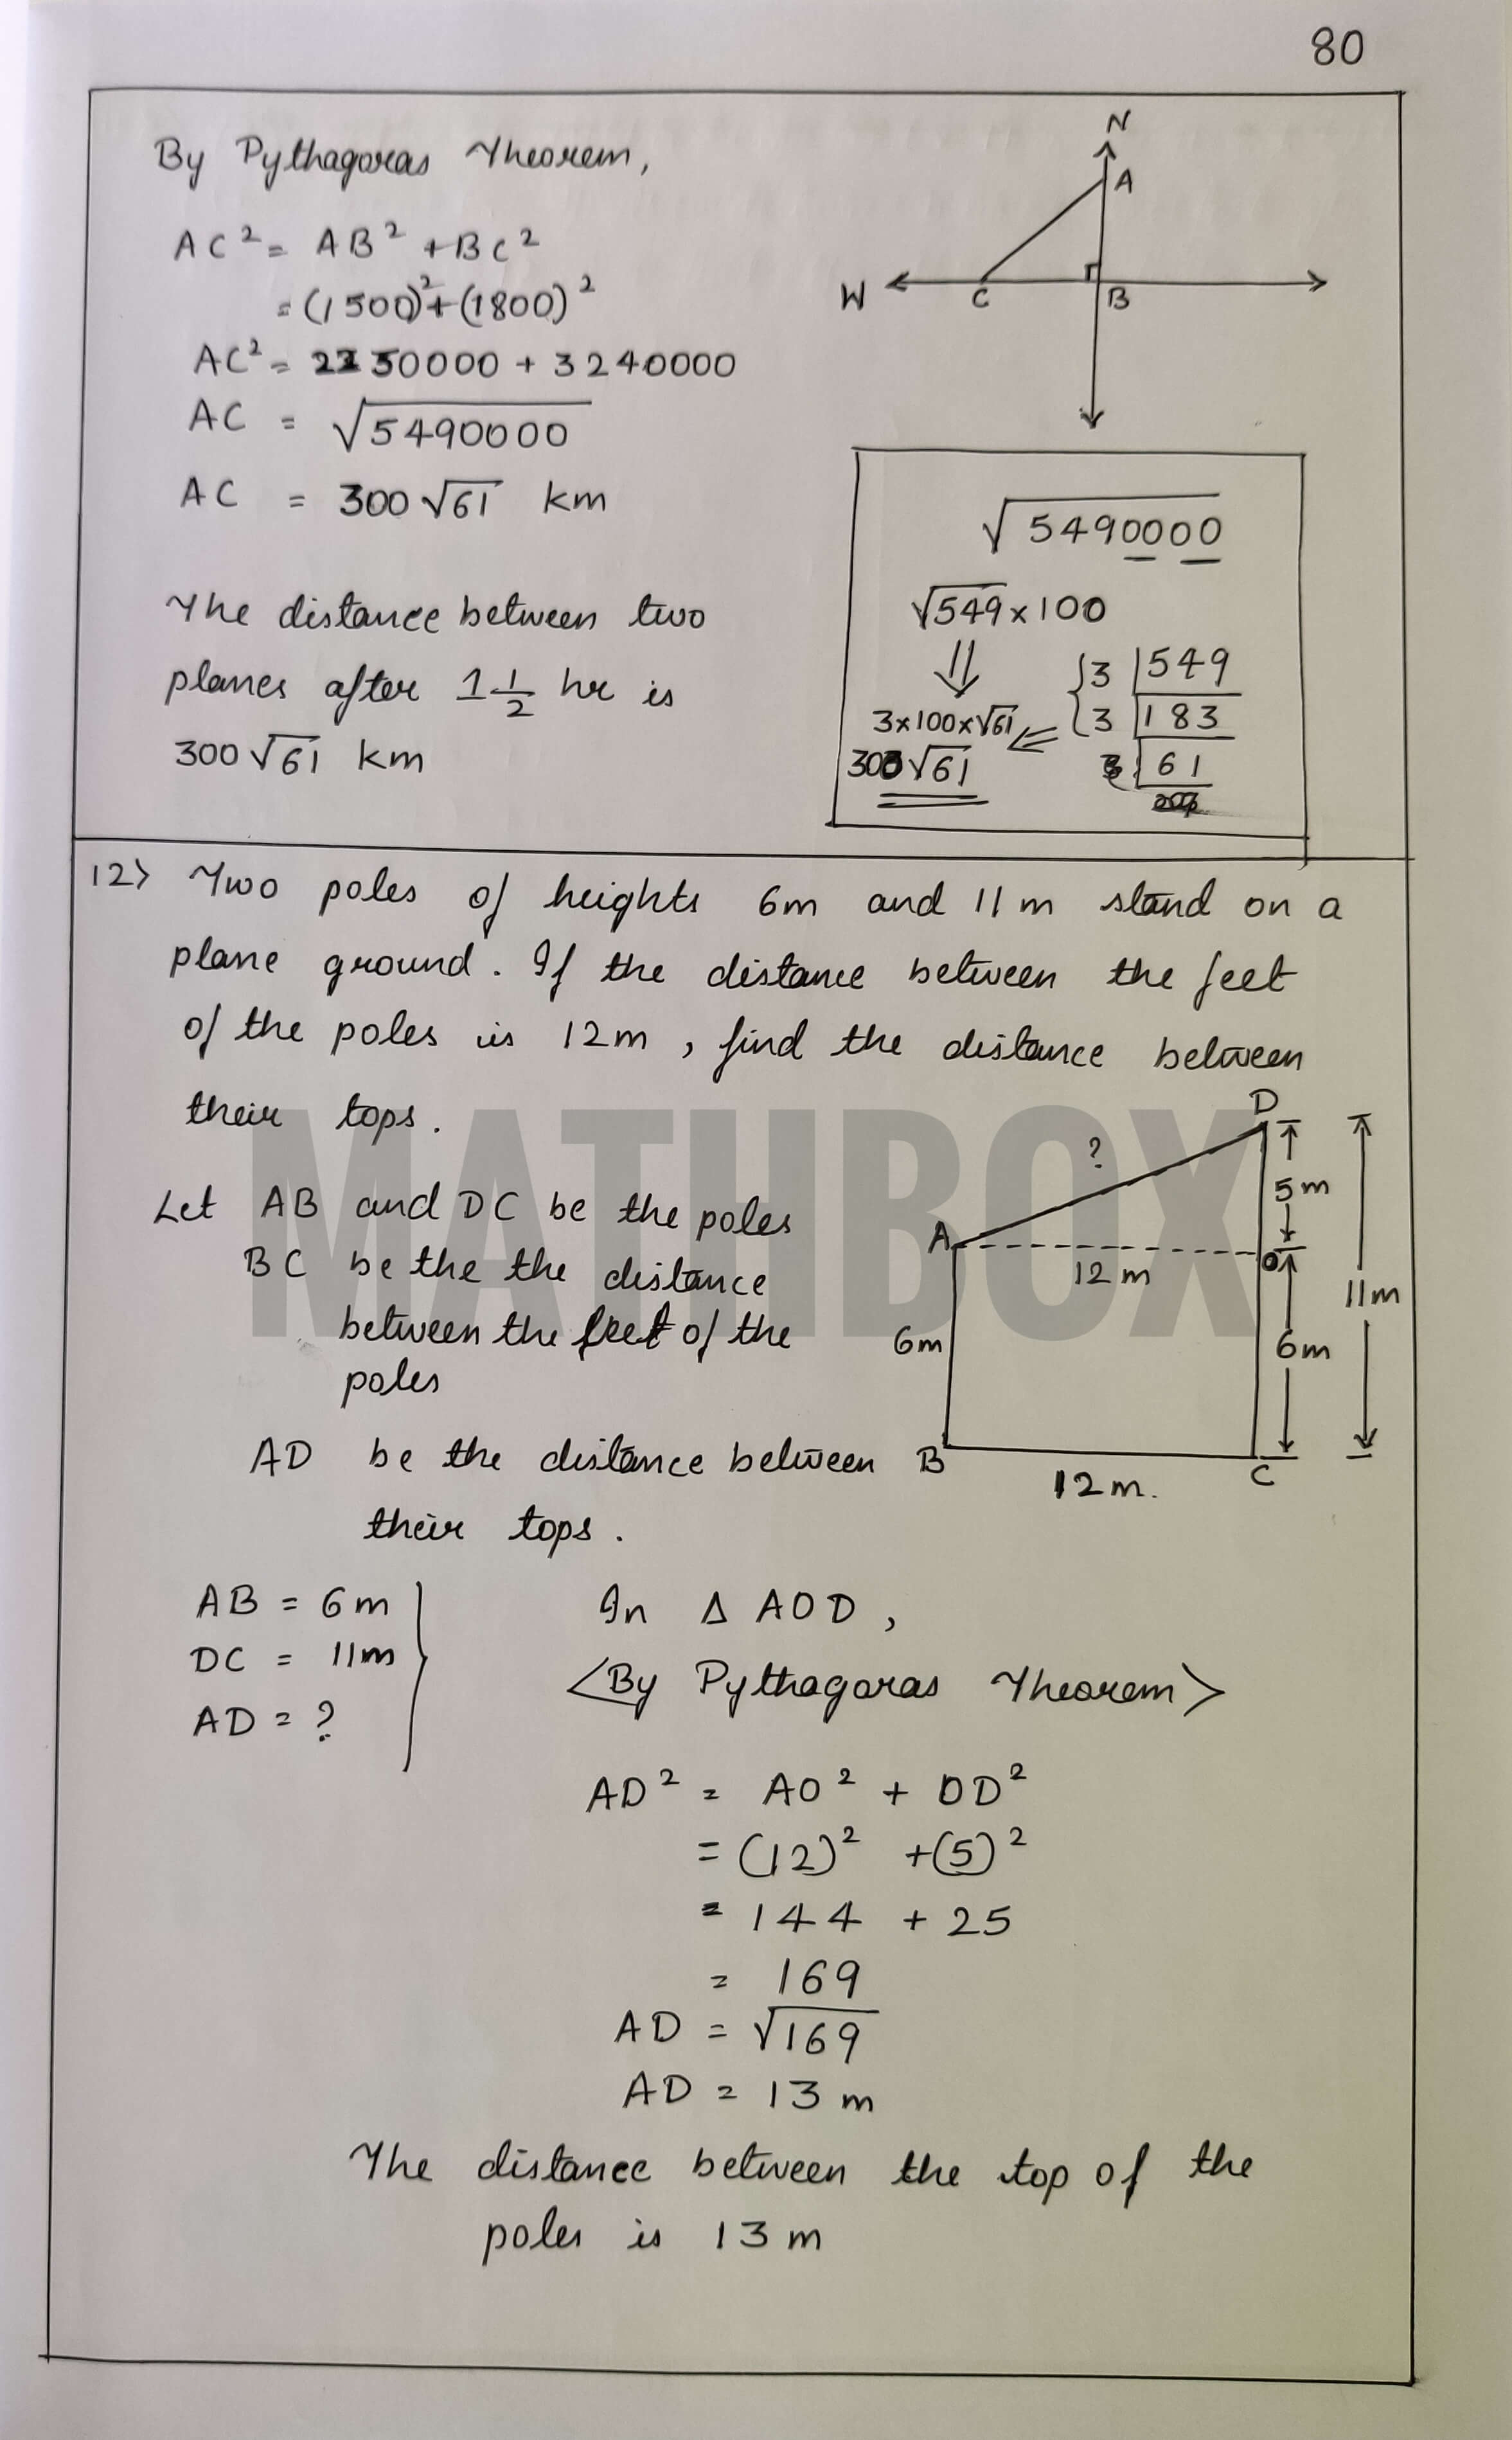 80
By Pythagoras Theorem,
AC² = AB² + BC²
= (1500)² + (1800)²
AC² = 2250000 + 3240000
AC = √5490000
AC = 300√61 km
The distance between two
planes after 1 1/2 hr is
300√61 km
N
A
W
C
B
√5490000
√549 × 100
⇓
3 | 549
3 | 183
61
3×100×√61
300√61
12> Two poles of heights 6m and 11m stand on a
plane ground. If the distance between the feet
of the poles is 12m, find the distance between
their tops.
MATHBOX
Let AB and DC be the poles
BC be the the distance
between the feet of the
poles
AD be the distance between
their tops.
D
?
5m
A
12m
O
11m
6m
6m
B
C
12m.
AB = 6m
DC = 11m
AD = ?
In Δ AOD,
<By Pythagoras Theorem>
AD² = AO² + OD²
= (12)² + (5)²
= 144 + 25
= 169
AD = √169
AD = 13 m
The distance between the top of the
poles is 13 m